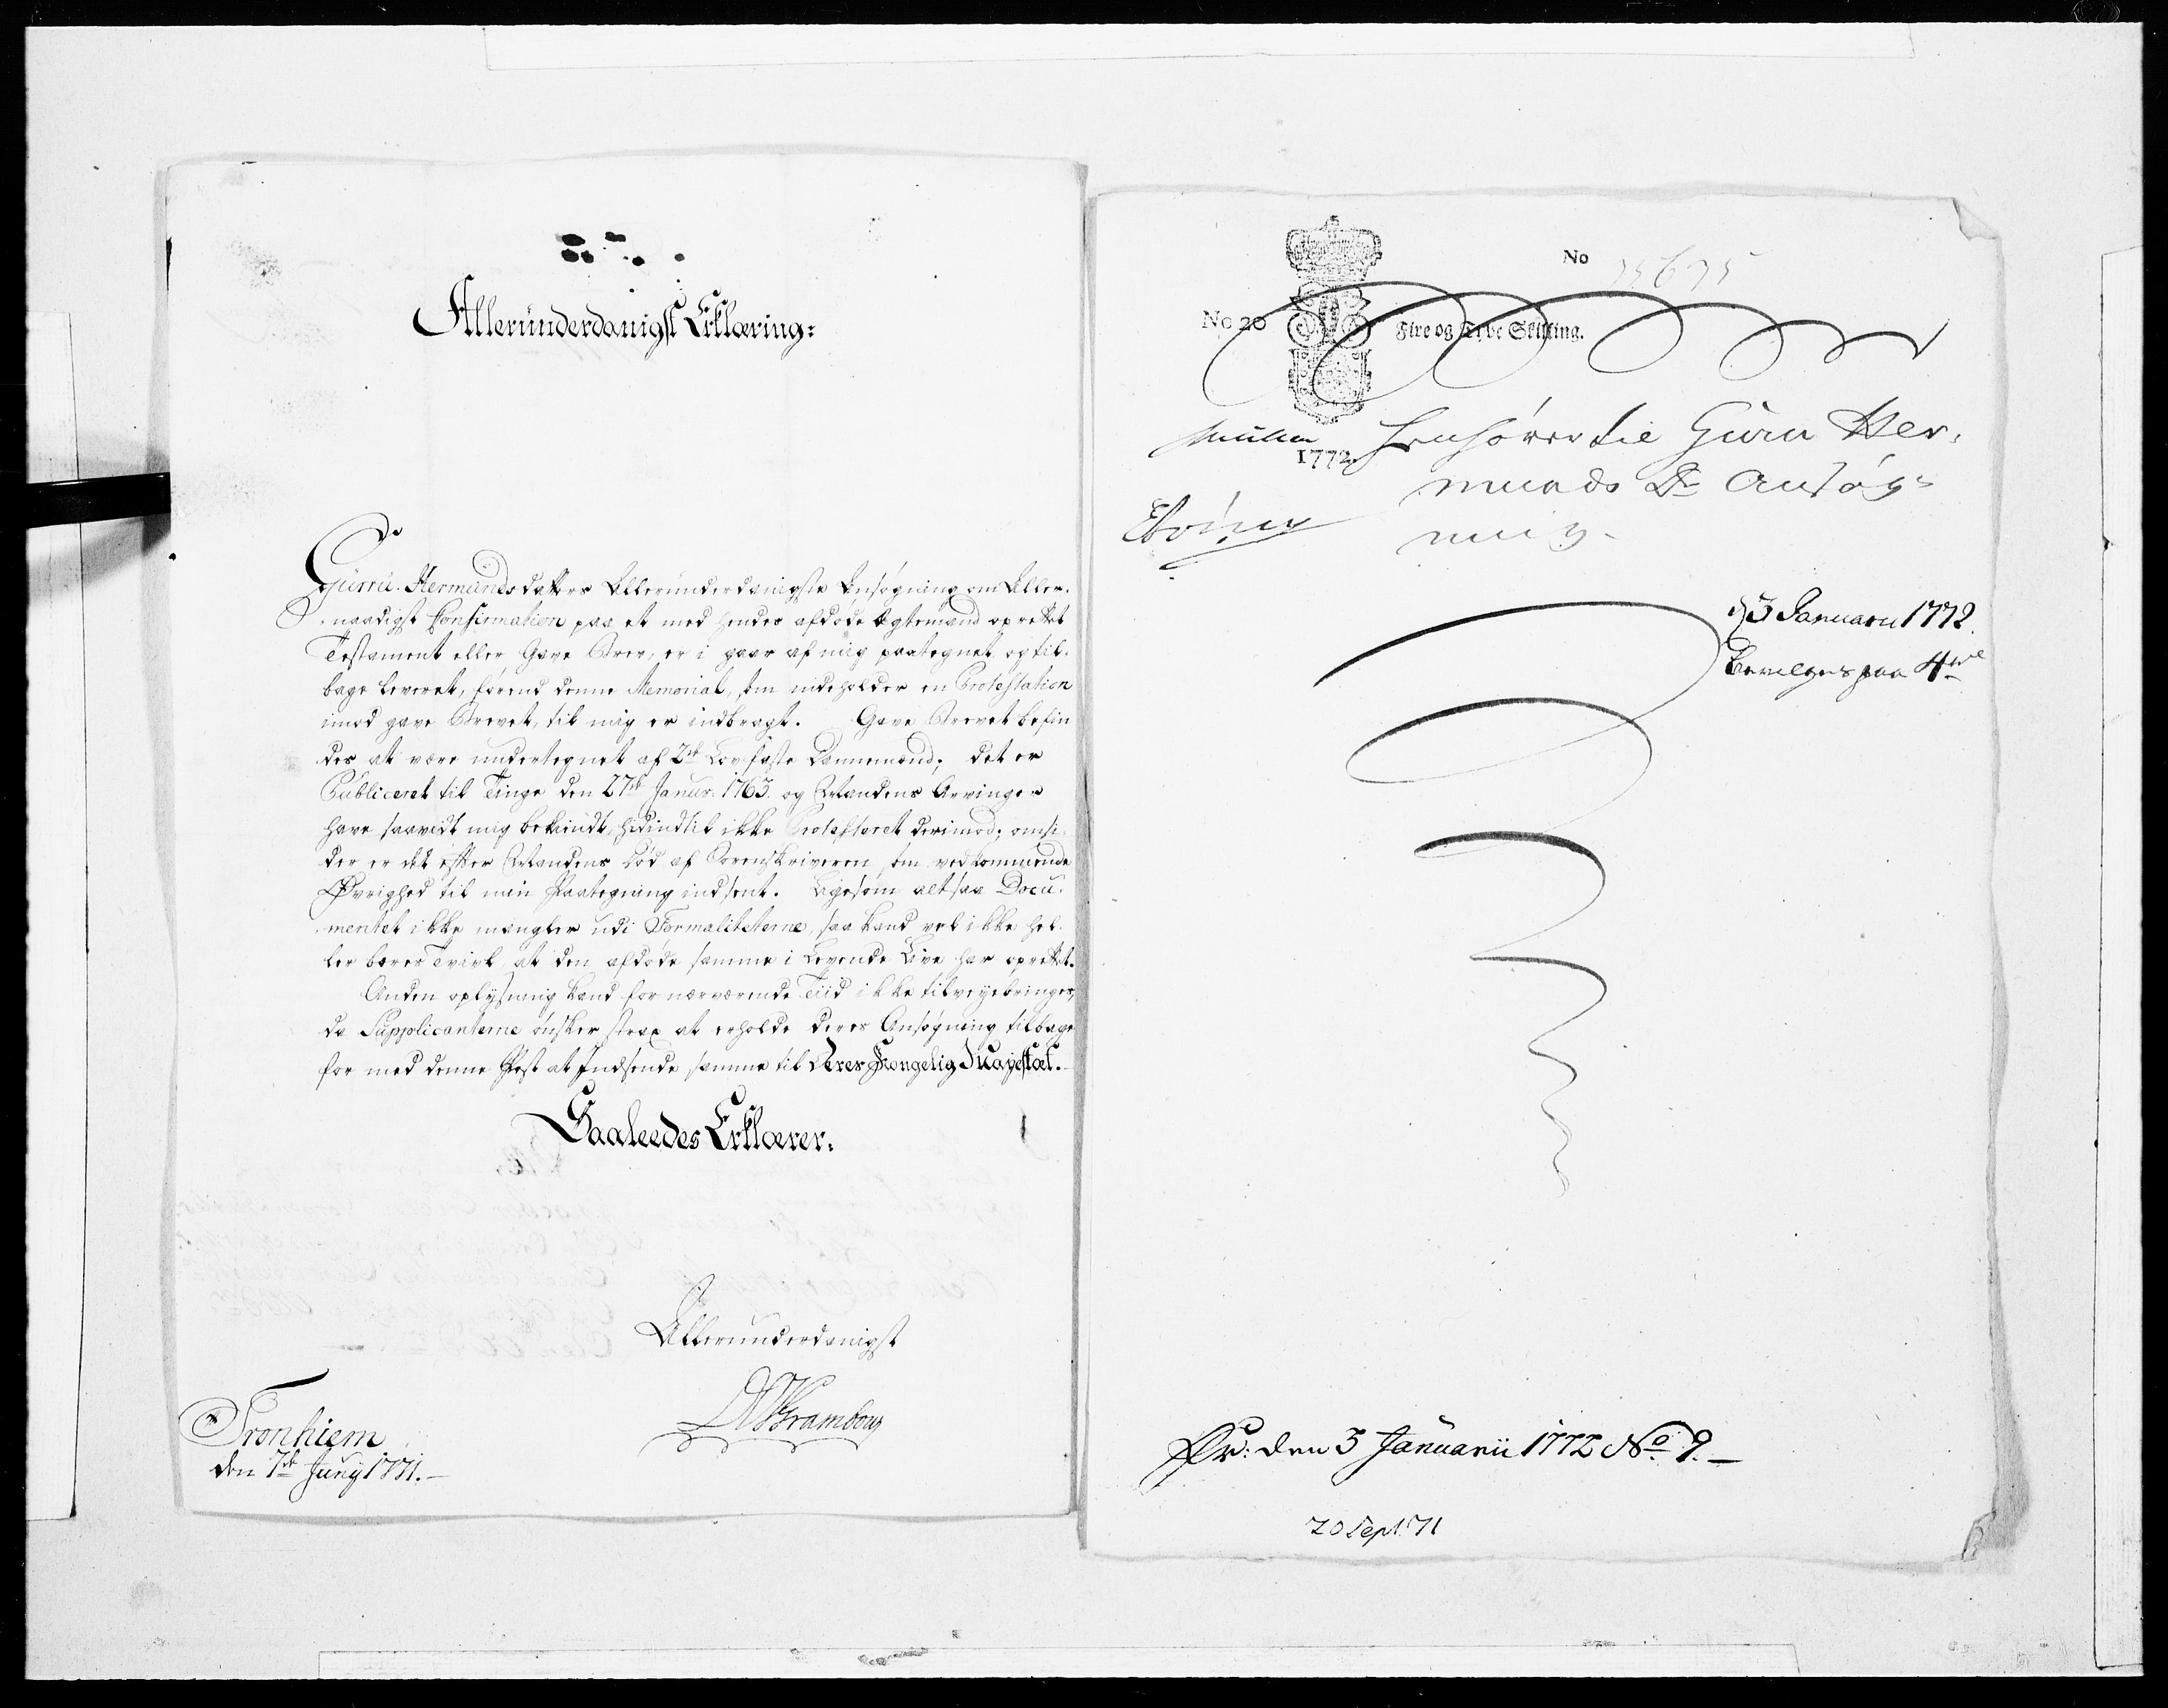 Allerunderdanigst Erklæring:
Gurru Hermundsdatters Allerunderdanigste Ansøgning om Aller-
naadigst Confirmation paa et med hendes afdøde Egtemand oprettet
Testament eller Gave Brev, er i gaar af mig paategnet og til-
bage leveret, førend denne Memorial, som indeholder en Protestation
imod gave Brevet, til mig er indbragt. Gave Brevet befin
des at være undertegnet af 2de Lovfaste Dannemænd; det er
Publiceret til Tinge den 27de Januar: 1763. og Mandens Arvinger
have saavidt mig bekiendt, hidindtil ikke Protesteret derimod; omsi-
der er det efter Mandens Død af Sorenskriveren som vedkommende
Øvrighed til min Paategning indsent. Ligesom altsaa Docu-
mentet ikke mangler udi Formaliteterne, saa kand vel ikke hel-
ler bæres Tvivl at den afdøde samme i Levende Live har oprettet.
Anden oplysning kand for nærværende Tiid ikke tilvejebringes,
da Supplicanterne ønsker strax at erholde deres Ansøgning tilbage
for med denne Post at Indsende samme til Deres Kongelig Mayestæt.
Saaleedes Erklærer.
Allerunderdanigst
Krambou
Tronhiem
den 7de Juny 1771.
No
No 20
Fire og Tyve Skilling.
1772
henhører til Guru Her-
munds Dr Ansøg-
ning.
d 3 Januarii 1772.
Bevilges paa 4
Pr: den 3 Januarii 1772 No. 9.
20 Sept. 71